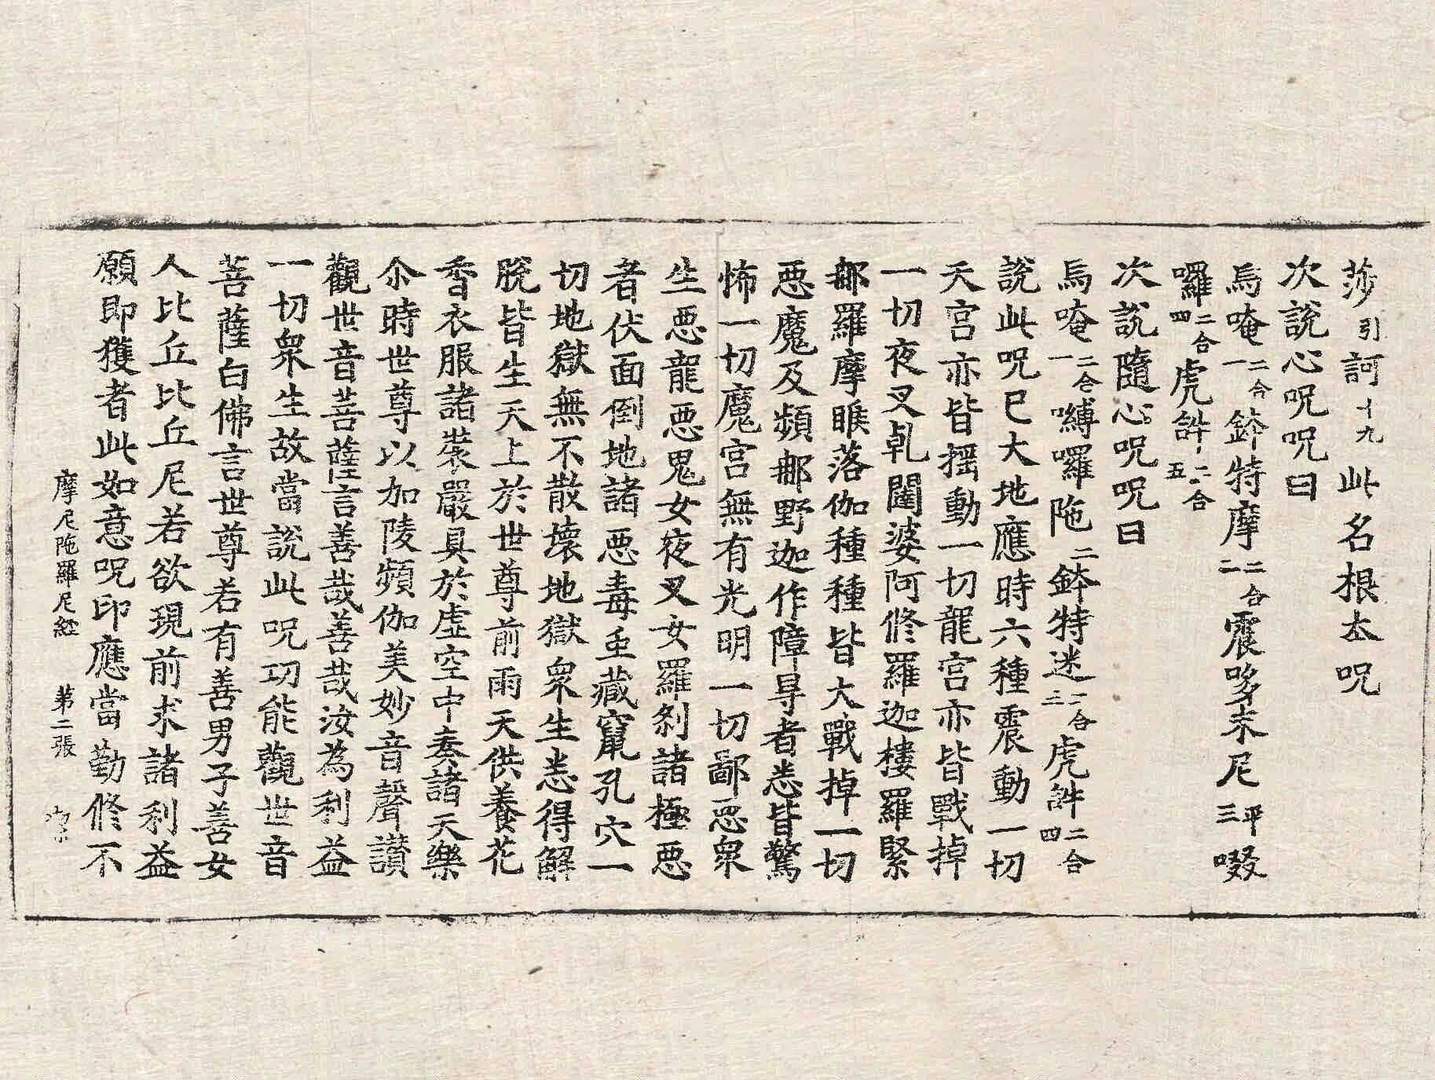 莎引訶十九此名根本呪
次說心呪呪曰
烏唵二合一鉢特摩二合二震哆末尼平三啜
囉二合四虎𤙖二合五
次說隨心呪呪曰
烏唵二合一嚩囉陁二鉢特迷二合三虎𤙖二合四
說此呪已大地應時六種震動一切
天宮亦皆揺動一切龍宮亦皆戰掉
一切夜叉乹闥婆阿脩羅迦樓羅緊
郍羅摩睺落伽種種皆大戰掉一切
惡魔及頻郍野迦作障㝵者悉皆驚
怖一切魔宮無有光明一切鄙惡衆
生惡龍惡鬼女夜叉女羅剎諸極惡
者伏面倒地諸惡毒虫藏竄孔穴一
切地獄無不散壞地獄衆生悉得解
脫皆生天上於世尊前雨天供養花
香衣服諸裝嚴具於虛空中奏諸天樂
尒時世尊以加陵頻伽美妙音聲讃
觀世音菩薩言善哉善哉汝為利益
一切衆生故當說此呪功能觀世音
菩薩白佛言世尊若有善男子善女
人比丘比丘尼若欲現前求諸利益
願即獲者此如意呪印應當勤修不
摩尼陁羅尼經 第二張